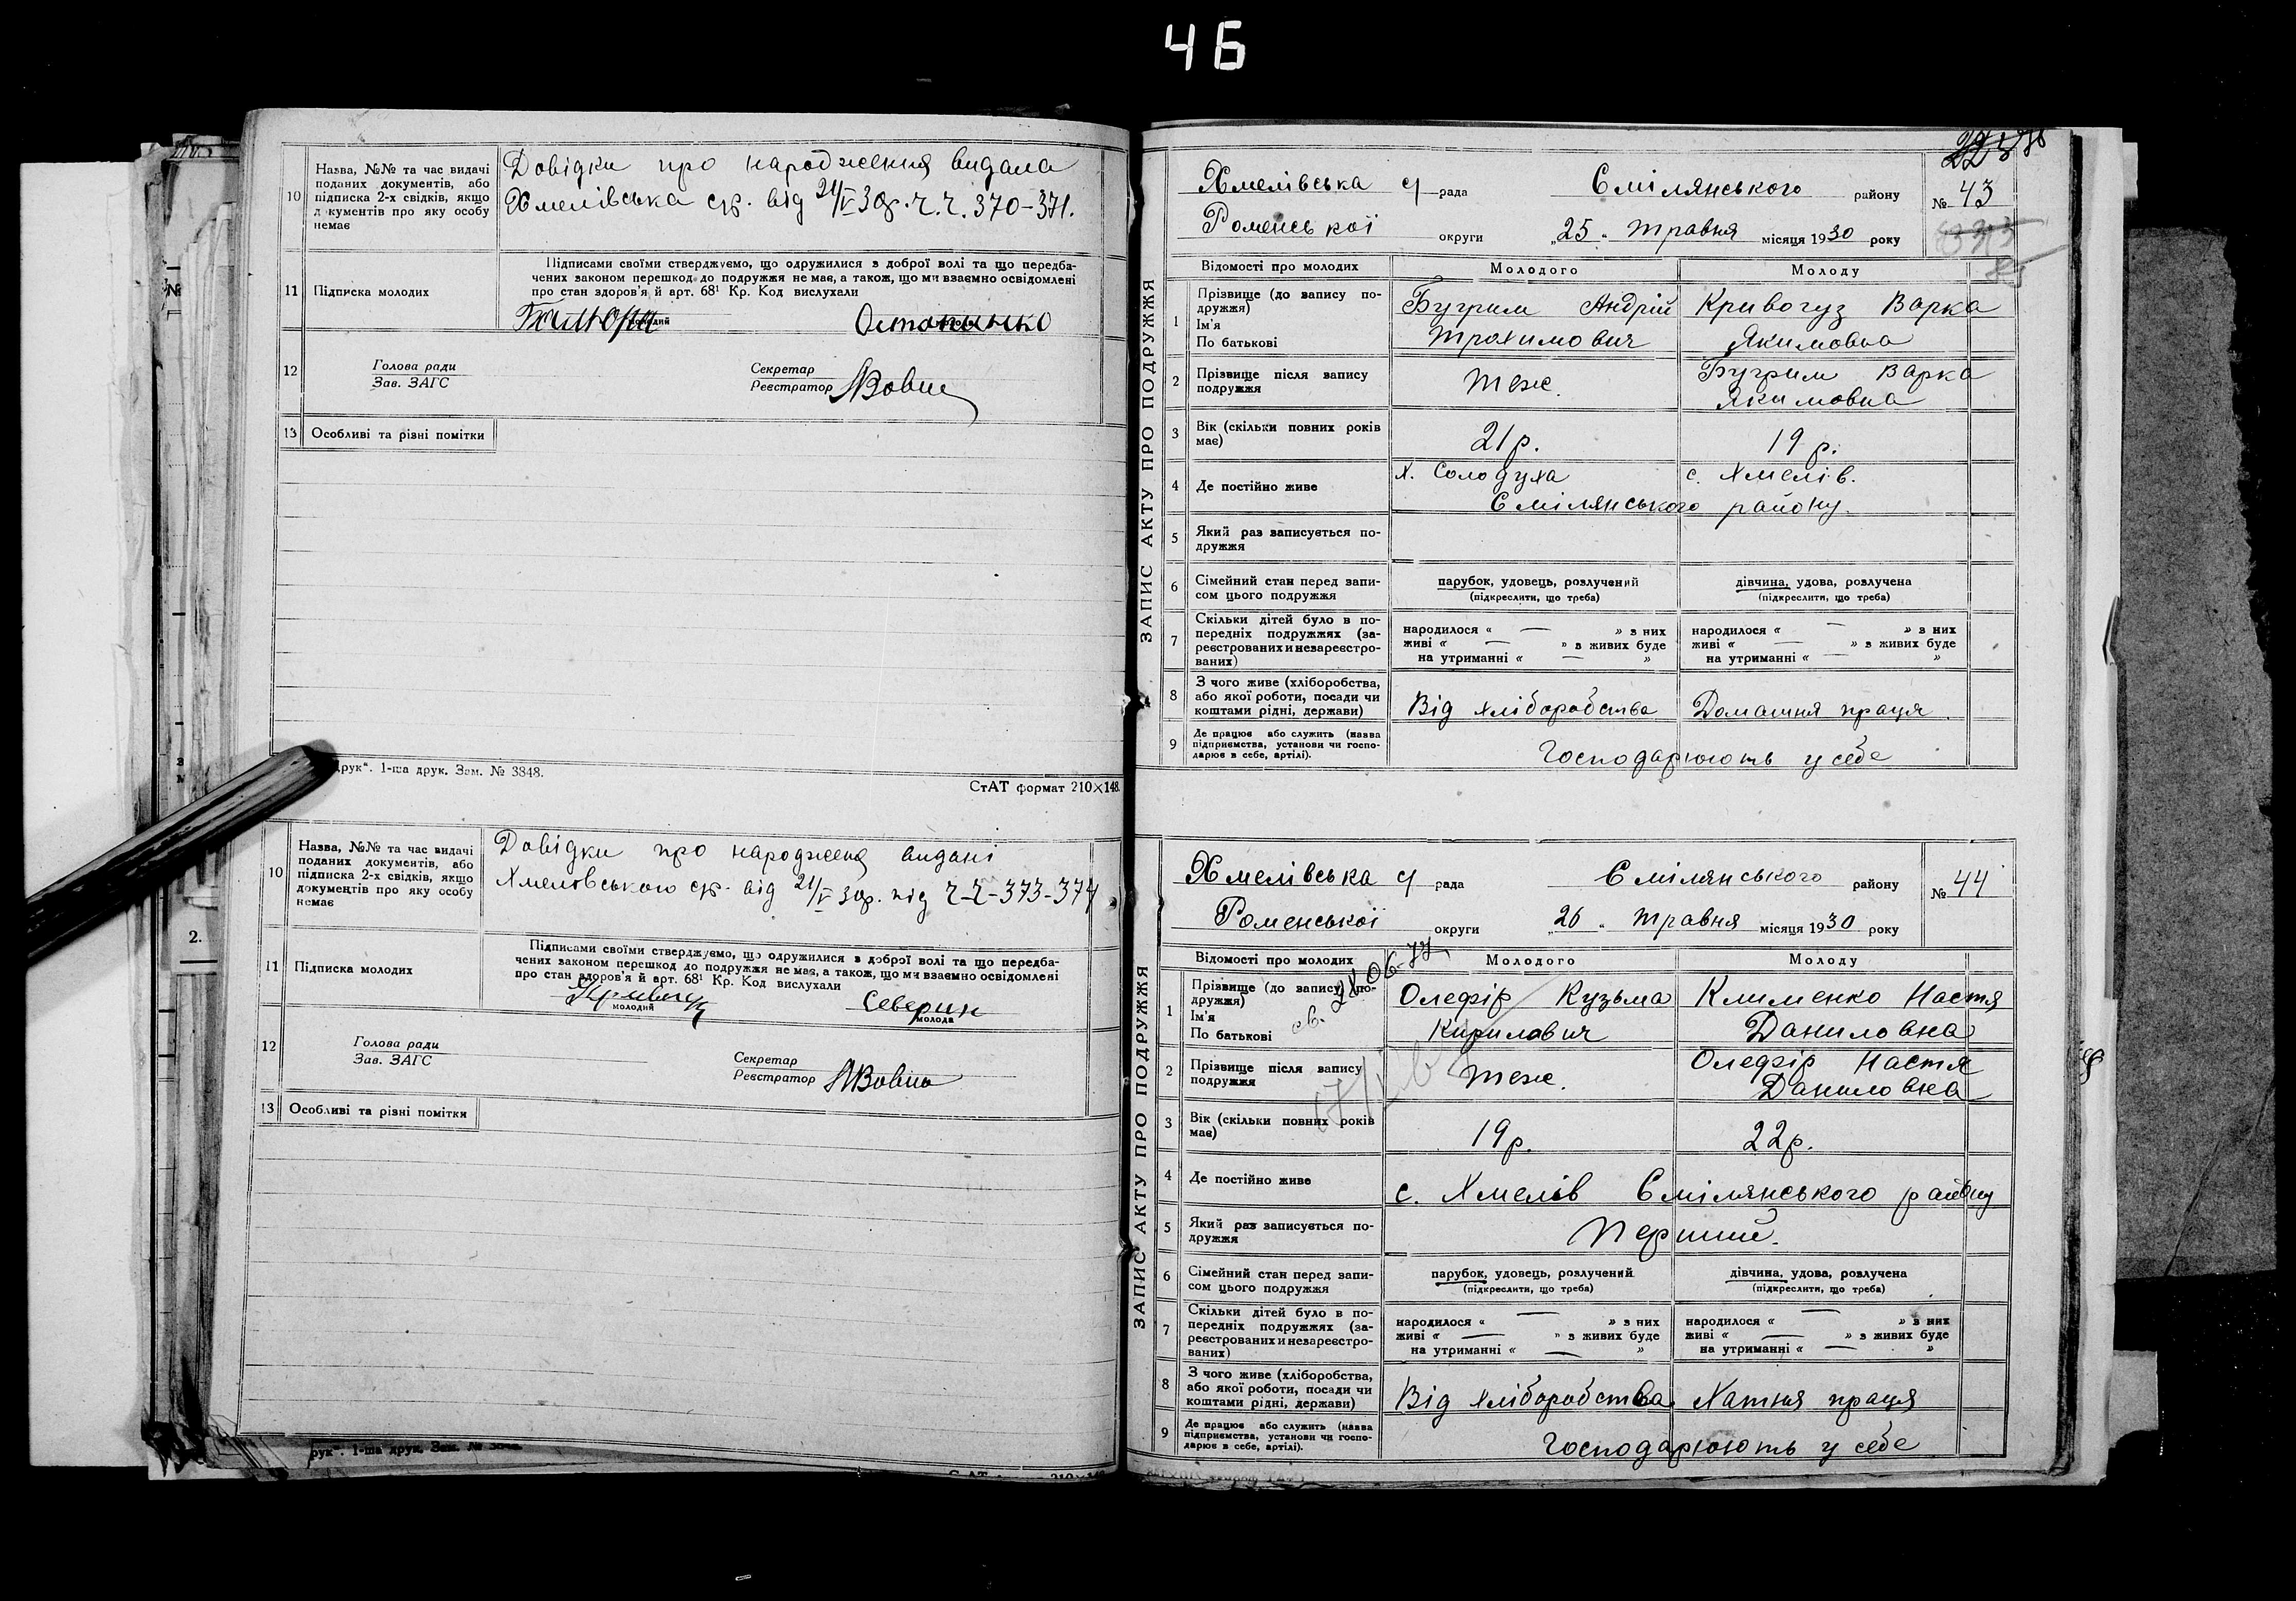 46
10
Назва, №№ та час видачі
поданих документів, або
підписка 2-х свідків, якщо
документів про яку особу
немає
Довідки про народження видала
Хмелівська с/р. від 21/V 30р. ч.ч. 370-371.
11
Підписка молодих
Підписами своїми стверджуємо, що одружилися з доброї волі та що передба-
чених законом перешкод до подружжя не має, а також, що ми взаємно освідомлені
про стан здоров'я й арт. 68¹ Кр. Код вислухали
молодий
Остапенко
12
Голова ради
Зав. ЗАГС
Секретар
Реєстратор
13
Особливі та різні помітки
друк". 1-ша друк. Зам. № 3848.
СтАТ формат 210×148.
10
Назва, №№ та час видачі
поданих документів, або
підписка 2-х свідків, якщо
документів про яку особу
немає
Довідки про народження видані
Хмелівською с/р. від 21/V 30р. під ч-ч-373-374
11
Підписка молодих
Підписами своїми стверджуємо, що одружилися з доброї волі та що передба-
чених законом перешкод до подружжя не має, а також, що ми взаємно освідомлені
про стан здоров'я й арт. 68¹ Кр. Код вислухали
молодий
Северин
молода
12
Голова ради
Зав. ЗАГС
Секретар
Реєстратор
13
Особливі та різні помітки
рук". 1-ша друк. Зам. № 3848.
2.
ЗАПИС АКТУ ПРО ПОДРУЖЖЯ
Хмелівська с/ рада Смілянського району
№ 43
Роменської округи „25" травня місяця 1930 року
Відомості про молодих
Молодого
Молоду
1
Прізвище (до запису по-
дружжя)
Ім'я
По батькові
Бугрим Андрій
Трохимович
Кривогуз Варка
Якимовна
2
Прізвище після запису
подружжя
теж.
Бугрим Варка
Якимовна
3
Вік (скільки повних років
має)
21р.
19 р.
4
Де постійно живе
х. Солодуха
с. Хмелів.
Смілянського району.
5
Який раз записується по-
дружжя
6
Сімейний стан перед запи-
сом цього подружжя
парубок, удовець, розлучений
(підкреслити, що треба)
дівчина, удова, розлучена
(підкреслити, що треба)
7
Скільки дітей було в по-
передніх подружжях (за-
реєстрованих и незареєстро-
ваних)
народилося « — » з них
живі « — » з живих буде
на утриманні « — »
народилося « — » з них
живі « — » з живих буде
на утриманні « — »
8
З чого живе (хліборобства,
або якої роботи, посади чи
коштами рідні, держави)
Від хліборобства
Домашня праця.
9
Де працює або служить (назва
підприємства, установи чи госпо-
дарює в себе, артілі).
Господарюють у себе
ЗАПИС АКТУ ПРО ПОДРУЖЖЯ
Хмелівська с/ рада Смілянського району
№ 44
Роменської округи „26" травня місяця 1930 року
Відомості про молодих
Молодого
Молоду
1
Прізвище (до запису по-
дружжя)
Ім'я
По батькові
Олефір Кузьма
Кирилович
Клименко Настя
Даниловна
2
Прізвище після запису
подружжя
теж.
Олефір Настя
Даниловна
3
Вік (скільки повних років
має)
19р.
22р.
4
Де постійно живе
с. Хмелів Смілянського району
5
Який раз записується по-
дружжя
Перший.
6
Сімейний стан перед запи-
сом цього подружжя
парубок, удовець, розлучений
(підкреслити, що треба)
дівчина, удова, розлучена
(підкреслити, що треба)
7
Скільки дітей було в по-
передніх подружжях (за-
реєстрованих и незареєстро-
ваних)
народилося « — » з них
живі « — » з живих буде
на утриманні « — »
народилося « — » з них
живі « — » з живих буде
на утриманні « — »
8
З чого живе (хліборобства,
або якої роботи, посади чи
коштами рідні, держави)
Від хліборобства
Хатня праця
9
Де працює або служить (назва
підприємства, установи чи госпо-
дарює в себе, артілі).
Господарюють у себе